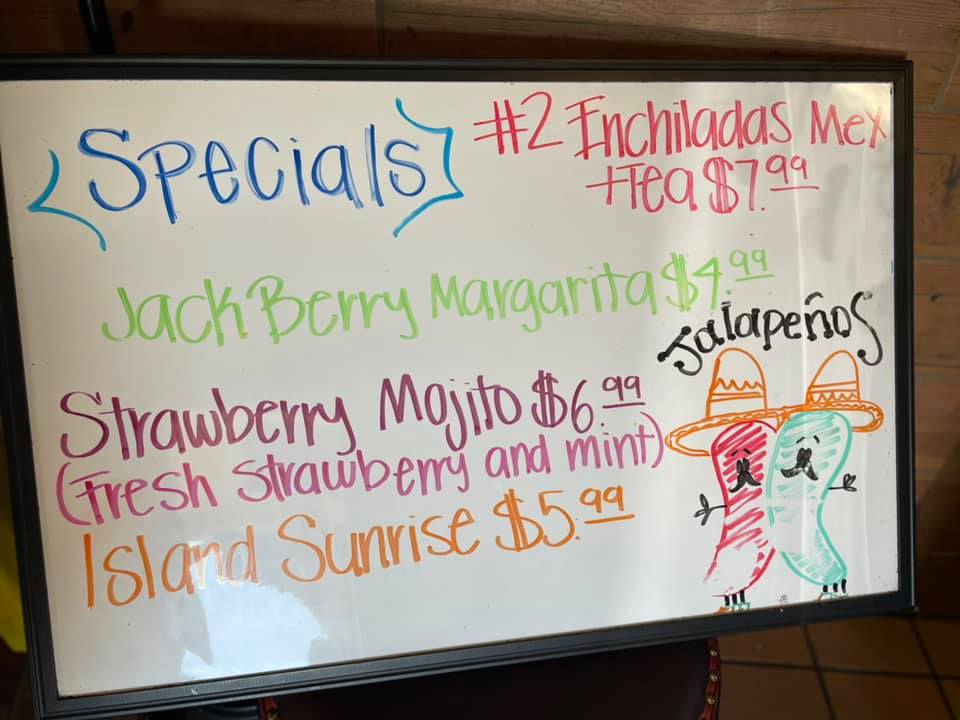 Specials
#2 Enchiladas Mex
+Tea $7.99
Jack Berry Margarita $4.99
Jalapeños
Strawberry Mojito $6.99
(Fresh Strawberry and mint)
Island Sunrise $5.99